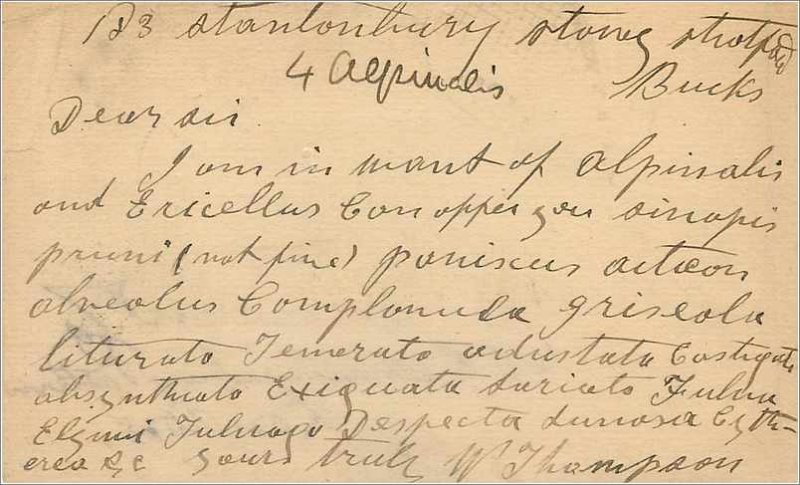 123 stantonbury stony stratford
4 alpinalis Bucks
Dear sir
I am in want of alpinalis
and Ericellus Can offer you sinapis
pruni (not fine) paniscus actaeon
alveolus Complanula griseola
liturata Temerata adustata Castigata
absynthiata Exiguata Fulva
Elymi Fulvago Despecta Lunosa Cyth-
erea &c yours truly W Thompson